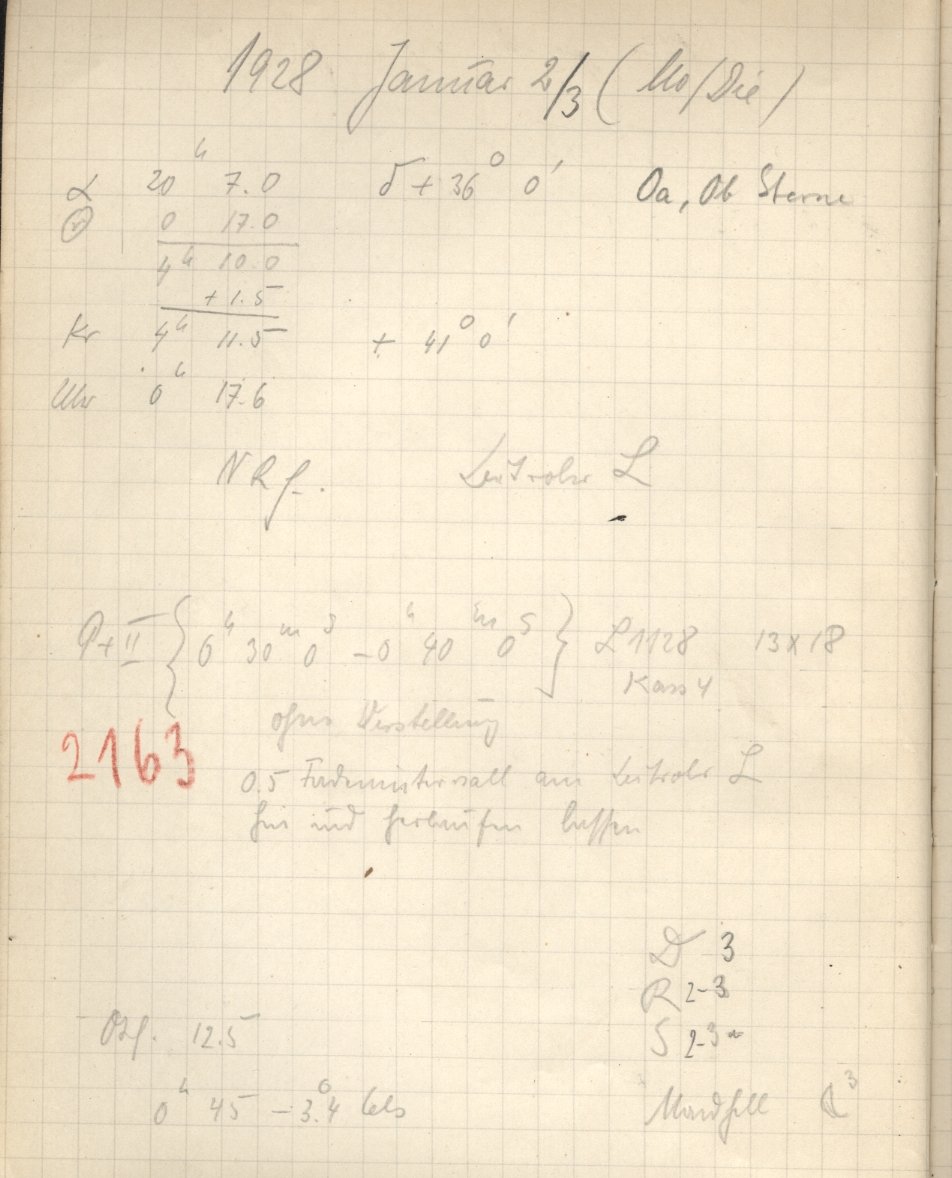 1928 Januar 2/3 (Mo/Die)
α 20h 7.0 δ + 36° 0' Oa, Ob Sterne
0 17.0
4h 10.0
+ 1.5
Kr 4h 11.5 + 41° 0'
Uhr 0h 17.6
NRf. Leitrohr L
P+II { 0h 30m 0s – 0h 40m 0s } L 1128 13x18
Kass 4
ohne Verstellung
2163
0.5 Fadenintervall am Leitrohr L
hin und herlaufen lassen
D 3
R 2-3
12.5 S 2-3
0h 45 -3.°4 Cels Mondhell ☾3